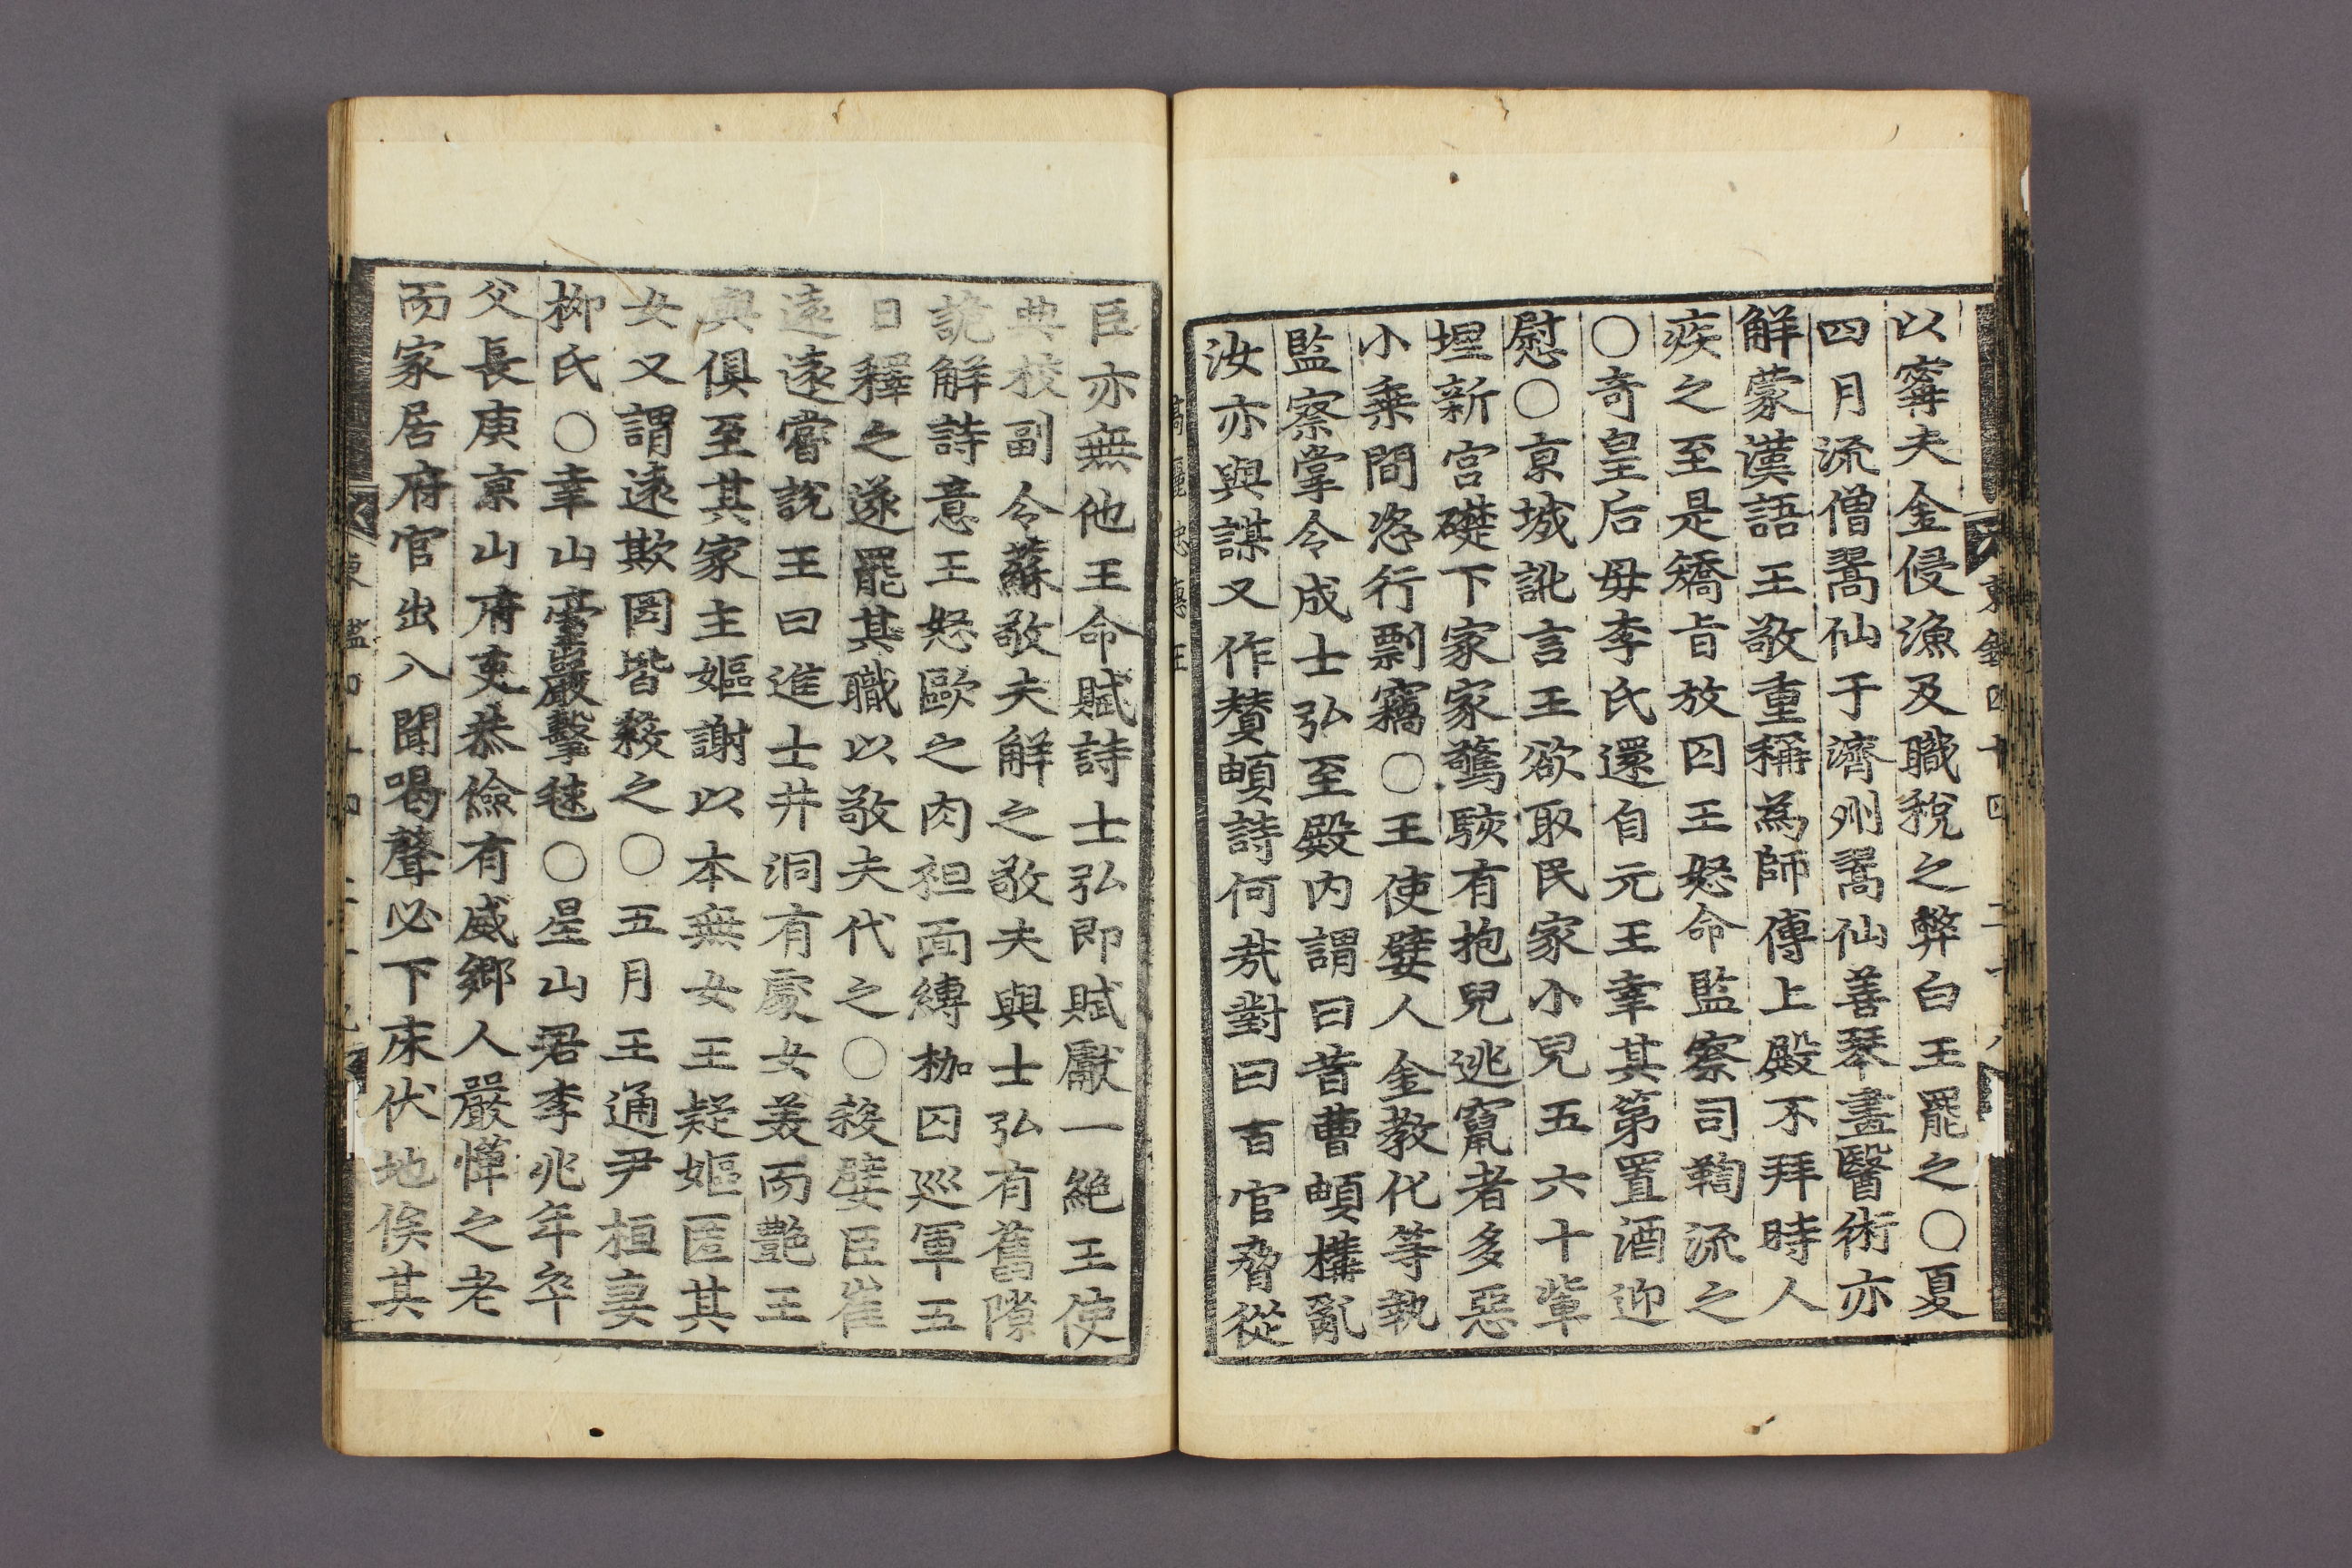 以寗夫金侵漁及職稅之弊白王罷之○夏
四月流僧翯仙于濟州翯仙善琴畫醫術亦
解蒙漢語王敬重稱為師傅上殿不拜時人
疾之至是矯旨放囚王怒命監察司鞫流之
○奇皇后母李氏還自元王幸其第置酒迎
慰○京城訛言王欲取民家小兒五六十輩
埋新宮礎下家家驚駭有抱兒逃竄者多惡
小乗間恣行剽竊○王使嬖人金教化等執
監察掌令成士弘至殿內謂曰昔曹頔構亂
汝亦與謀又作賛頔詩何㢤對曰百官脅從
高麗忠惠王
臣亦無他王命賦詩士弘即賦獻一絶王使
典校副令蘇敬夫解之敬夫與士弘有舊隙
詭解詩意王怒歐之肉袒面縛枷囚巡軍五
日釋之遂罷其職以敬夫代之○殺嬖臣崔
遠遠嘗說王曰進士井洞有處女美而艶王
與俱至其家主嫗謝以本無女王疑嫗匿其
女又謂遠欺罔皆殺之○五月王通尹桓妻
柳氏○幸山臺巖擊毬○星山君李兆年卒
父長庚京山府吏恭儉有威鄉人嚴憚之老
而家居府官出入聞喝聲必下床伏地俟其